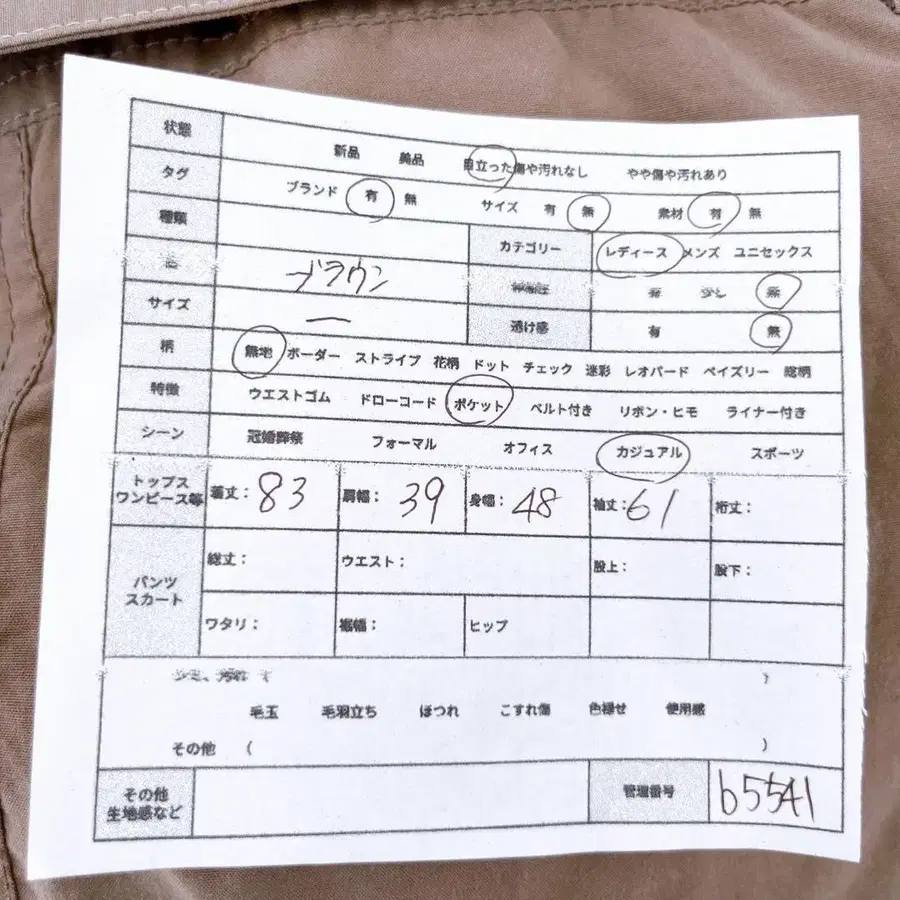 状態 新品 美品 目立った傷や汚れなし やや傷や汚れあり
タグ ブランド 有 無 サイズ 有 無 素材 有 無
種類 カテゴリー レディース メンズ ユニセックス
色 ブラウン 伸縮性 有 少し 無
サイズ ー 透け感 有 無
柄 無地 ボーダー ストライプ 花柄 ドット チェック 迷彩 レオパード ペイズリー 総柄
特徴 ウエストゴム ドローコード ポケット ベルト付き リボン・ヒモ ライナー付き
シーン 冠婚葬祭 フォーマル オフィス カジュアル スポーツ
トップス
ワンピース等 着丈：83 肩幅：39 身幅：48 袖丈：61 裄丈：
パンツ
スカート
総丈： ウエスト： 股上： 股下：
ワタリ： 裾幅： ヒップ
シミ、汚れ （ ）
毛玉 毛羽立ち ほつれ こすれ傷 色褪せ 使用感
その他 （ ）
その他
生地感など
管理番号 b5541